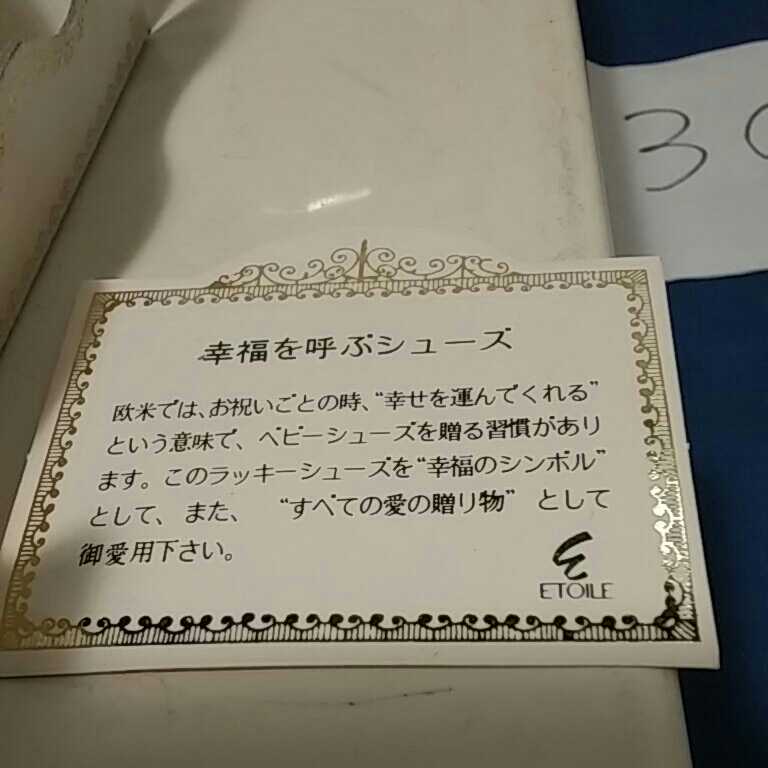 幸福を呼ぶシューズ
欧米では、お祝いごとの時、“幸せを運んでくれる”
という意味で、ベビーシューズを贈る習慣があり
ます。このラッキーシューズを“幸福のシンボル”
として、また、“すべての愛の贈り物”として
御愛用下さい。
ETOILE
3